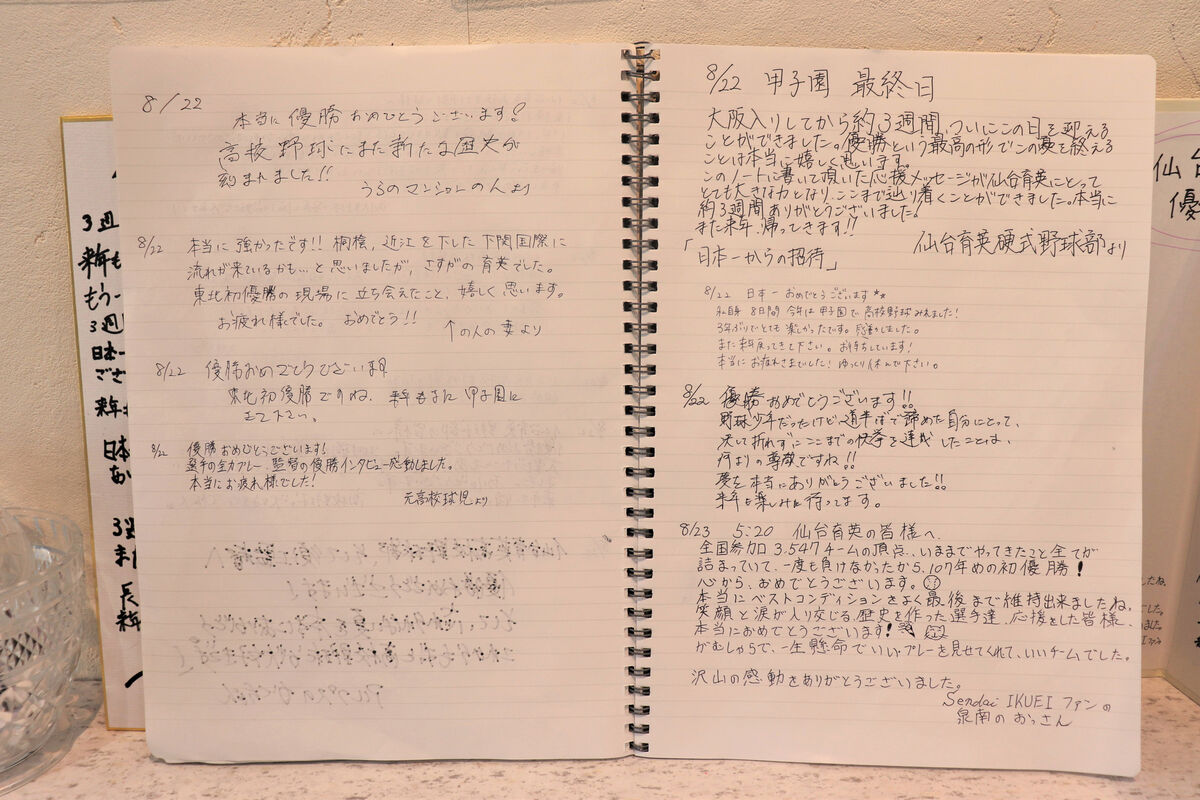 8/22
本当に優勝おめでとうございます!
高校野球にまた新たな歴史が
刻まれました!!
うらのマンションの人より
8/22 本当に強かったです!! 桐蔭,近江を下した下関国際に
流れが来ているかも…と思いましたが,さすがの育英でした。
東北初優勝の現場に立ち会えたこと、嬉しく思います。
お疲れ様でした。 おめでとう!!
↑の人の妻より
8/22 優勝おめでとうございます!
東北初優勝ですね。来年も又甲子園に
きて下さい。
8/22 優勝おめでとうございます!
選手の全力プレー、監督の優勝インタビュー感動しました。
本当にお疲れ様でした!
元高校球児より
8/22 甲子園 最終日
大阪入りしてから約3週間、ついにこの日を迎える
ことができました。優勝という最高の形でこの夏を終える
ことは本当に嬉しく思います。
このノートに書いて頂いた応援メッセージが仙台育英にとって
とても大きな力となり、ここまで辿り着くことができました。本当に
約3週間ありがとうございました!
また来年、帰ってきます!!
仙台育英硬式野球部より
「日本一からの招待」
8/22 日本一おめでとうございます**
私自身 8日間 今年は甲子園で高校野球みれました!
3年ぶりでとても楽しかったです。感動しました。
また来年戻ってきて下さい。お待ちしています!
本当にお疲れさまでした!ゆっくり休んで下さい。
8/22 優勝おめでとうございます!!
野球少年だったけど道半ばで諦めた自分にとって、
決して折れずにここまでの快挙を達成したことは、
何よりの尊敬ですね!!
夢を本当にありがとうございました!!
来年も楽しみに待ってます。
8/23 5:20 仙台育英の皆様へ
全国参加 3.547チームの頂点、いままでやってきたこと全てが
詰まっていて、一度も負けなかったから、107年めの初優勝!
心から、おめでとうございます。
本当にベストコンディションをよく最後まで維持出来ましたね。
笑顔と涙が入り交じる、歴史を作った選手達、応援をした皆様、
本当におめでとうございます!
がむしゃらで、一生懸命でいいプレーを見せてくれて、いいチームでした。
沢山の感動をありがとうございました。
Sendai IKUEI ファンの
泉南のおっさん
3週
来年も
もう一
3週
日本一
ござ
来年
日本
お
3週
また
長
来年
仙台
優